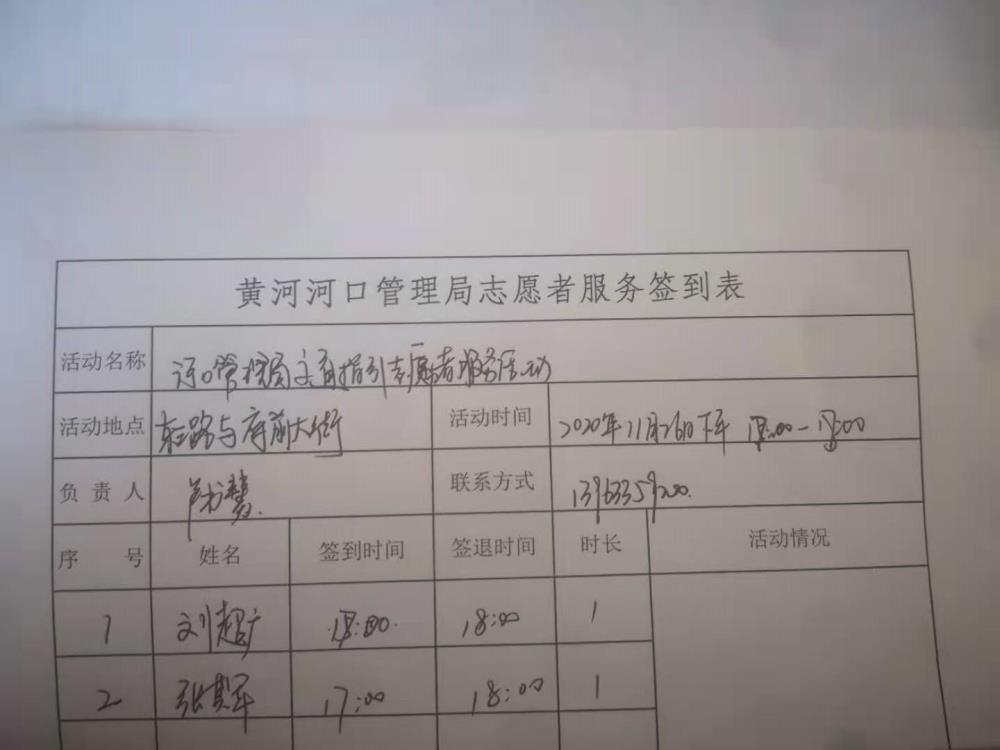 黄河河口管理局志愿者服务签到表
活动名称 河口管理局交通指引志愿者服务活动
活动地点 东三路与府前大街 活动时间 2020年11月26日下午 17:00-18:00
负责人 联系方式 13963359200
序号 姓名 签到时间 签退时间 时长 活动情况
1 刘超 18:00 1
2 张 17:00 18:00 1